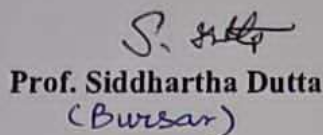 Prof. Siddhartha Dutta
(Bursar)